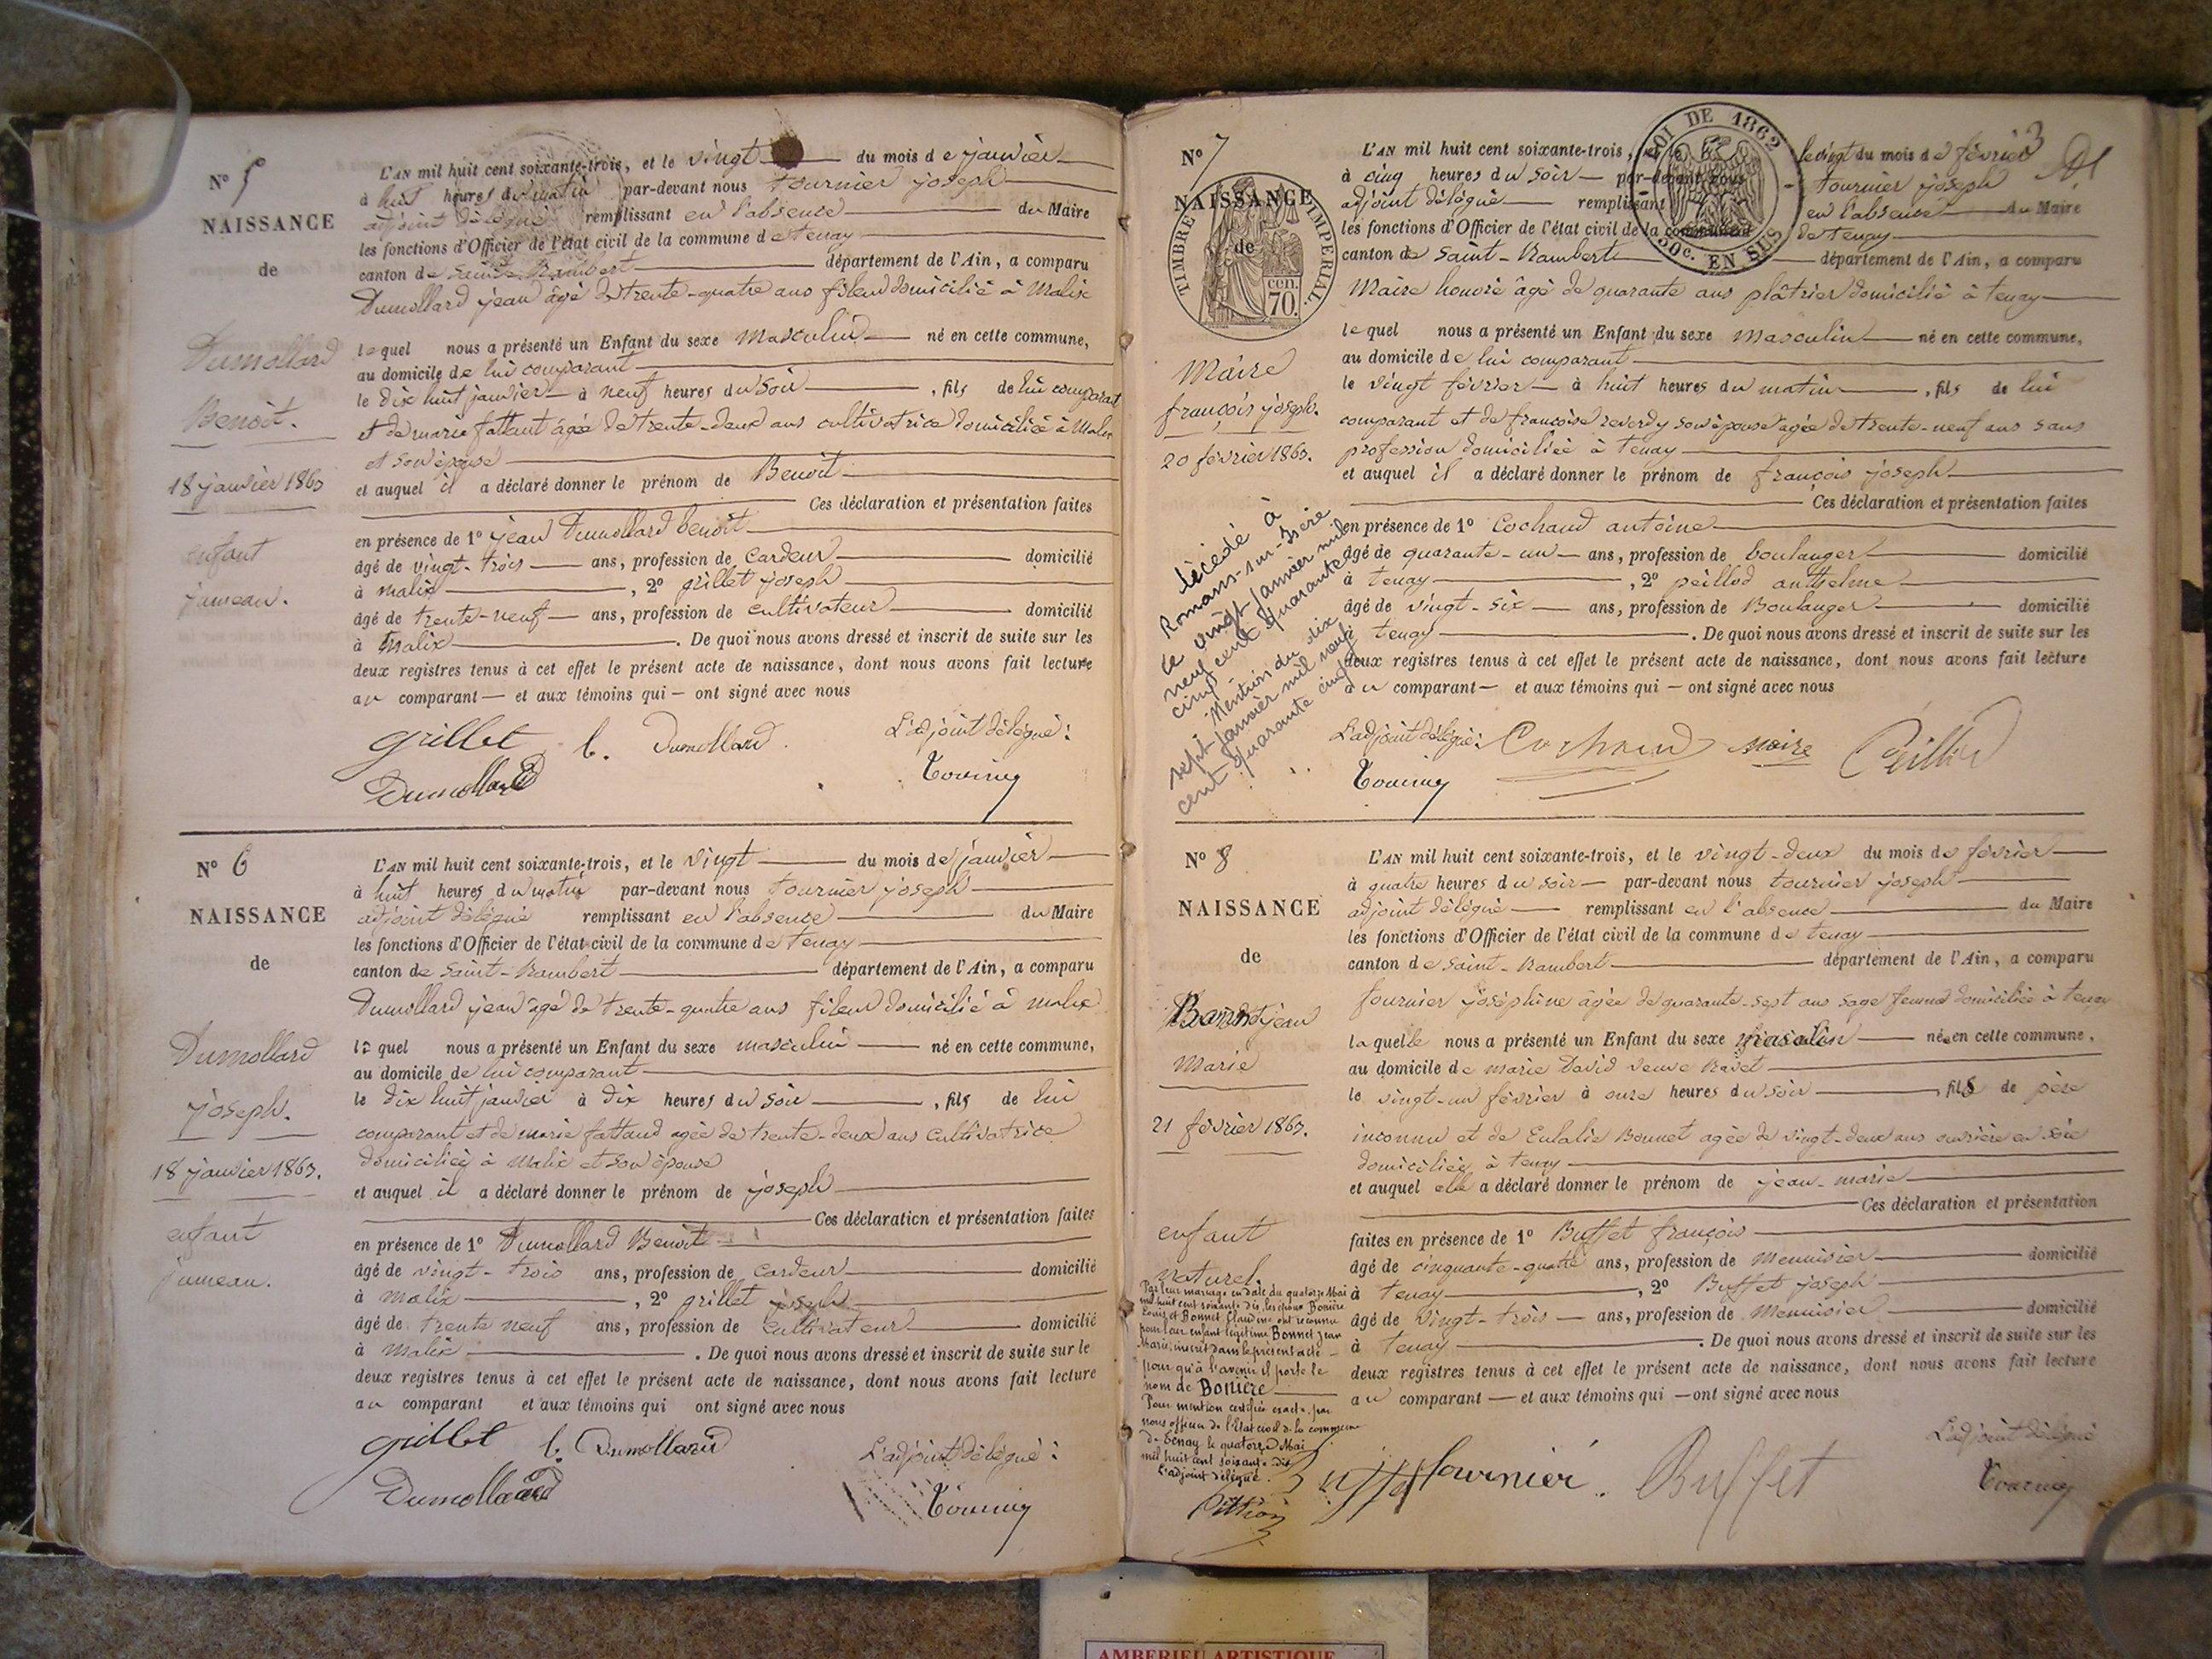 N° 5
NAISSANCE
de
Dumollard
Benoit.
18 janvier 1863
enfant
jumeau.
L'AN mil huit cent soixante-trois, et le vingt du mois de janvier
à huit heures du matin par-devant nous tournier joseph
adjoint délégué remplissant en l'absence du Maire
les fonctions d'Officier de l'état civil de la commune de tenay
canton de Saint-Rambert département de l'Ain, a comparu
Dumollard jean âgé de trente-quatre ans fileur domicilié à Malix
lequel nous a présenté un Enfant du sexe masculin né en cette commune,
au domicile de lui comparant
le dix huit janvier à neuf heures du soir, fils de lui comparant
et de marie fattant âgée de trente-deux ans cultivatrice domiciliée à Malix
et son épouse
et auquel il a déclaré donner le prénom de Benoit
Ces déclaration et présentation faites
en présence de 1° jean Dumollard benoit
âgé de vingt-trois ans, profession de cardeur domicilié
à malix, 2° grillet joseph
âgé de trente-neuf ans, profession de cultivateur domicilié
à Malix. De quoi nous avons dressé et inscrit de suite sur les
deux registres tenus à cet effet le présent acte de naissance, dont nous avons fait lecture
au comparant et aux témoins qui ont signé avec nous
grillet b. Dumollard. L'adjoint délégué:
Dumollard
N° 6
NAISSANCE
de
Dumollard
joseph.
18 janvier 1863.
enfant
jumeau.
L'AN mil huit cent soixante-trois, et le vingt du mois de janvier
à huit heures du matin par-devant nous tournier joseph
adjoint délégué remplissant en l'absence du Maire
les fonctions d'Officier de l'état civil de la commune de tenay
canton de Saint-Rambert département de l'Ain, a comparu
Dumollard jean agé de trente-quatre ans fileur domicilié à malix
lequel nous a présenté un Enfant du sexe masculin né en cette commune,
au domicile de lui comparant
le dix huit janvier à dix heures du soir, fils de lui
comparant et de marie fattand agée de trente-deux ans cultivatrice
domiciliée à Malix et son épouse
et auquel il a déclaré donner le prénom de joseph
Ces déclaration et présentation faites
en présence de 1° Dumollard Benoit
âgé de vingt-trois ans, profession de cardeur domicilié
à malix, 2° grillet joseph
âgé de trente neuf ans, profession de cultivateur domicilié
à malix. De quoi nous avons dressé et inscrit de suite sur le
deux registres tenus à cet effet le présent acte de naissance, dont nous avons fait lecture
au comparant et aux témoins qui ont signé avec nous
grillet b. Dumollard L'adjoint délégué:
Dumollard
N° 7
NAISSANCE
de
TIMBRE IMPERIAL
70. cen.
LOI DE 1862
50c. EN SUS
Maire
françois joseph.
20 février 1863.
décédé à
Romans-sur-Isère
le vingt janvier mil
neuf cent quarante
cinq
Mention du dix
sept janvier mil neuf
cent quarante cinq
L'AN mil huit cent soixante-trois, le vingt du mois de février 3
à cinq heures du soir par-devant nous tournier joseph
adjoint délégué remplissant en l'absence du Maire
les fonctions d'Officier de l'état civil de la commune de tenay
canton de Saint-Rambert département de l'Ain, a comparu
Maire honoré âgé de quarante ans plâtrier domicilié à tenay
lequel nous a présenté un Enfant du sexe masculin né en cette commune,
au domicile de lui comparant
le vingt février à huit heures du matin, fils de lui
comparant et de françoise reverdy son épouse agée de trente-neuf ans sans
profession domiciliée à tenay
et auquel il a déclaré donner le prénom de françois joseph
Ces déclaration et présentation faites
en présence de 1° Cochaud antoine
âgé de quarante-un ans, profession de boulanger domicilié
à tenay, 2° peillod anthelme
âgé de vingt-six ans, profession de Boulanger domicilié
tenay. De quoi nous avons dressé et inscrit de suite sur les
deux registres tenus à cet effet le présent acte de naissance, dont nous avons fait lecture
au comparant et aux témoins qui ont signé avec nous
L'adjoint délégué: Cochaud Maire Peillod
N° 8
NAISSANCE
de
jean
Marie
21 février 1863.
enfant
naturel.
Par leur mariage en date du quatorze Mai
mil huit cent soixante dix, les époux Bonière
Louis et Bonnet Claudine ont reconnu
pour leur enfant légitime Bonnet Jean
Marie, inscrit dans le présent acte
pour qu'à l'avenir il porte le
nom de Bonière
Pour mention certifiée exacte par
nous officier de l'Etat civil de la commune
de Tenay le quatorze Mai
mil huit cent soixante dix
L'adjoint délégué.
L'AN mil huit cent soixante-trois, et le vingt-deux du mois de février
à quatre heures du soir par-devant nous tournier joseph
adjoint délégué remplissant en l'absence du Maire
les fonctions d'Officier de l'état civil de la commune de tenay
canton de Saint-Rambert département de l'Ain, a comparu
fournier joséphine âgée de quarante-sept ans sage femme domiciliée à tenay
laquelle nous a présenté un Enfant du sexe masculin né en cette commune,
au domicile de marie David veuve Ravet
le vingt-un février à onze heures du soir, fils de père
inconnu et de Eulalie Bonnet agée de vingt-deux ans ouvrière en soie
domiciliée à tenay
et auquel elle a déclaré donner le prénom de jean-marie
Ces déclaration et présentation
faites en présence de 1° Buffet françois
âgé de cinquante-quatre ans, profession de Menuisier domicilié
à tenay, 2° Buffet joseph
âgé de vingt-trois ans, profession de Menuisier domicilié
à tenay. De quoi nous avons dressé et inscrit de suite sur les
deux registres tenus à cet effet le présent acte de naissance, dont nous avons fait lecture
au comparant et aux témoins qui ont signé avec nous
L'adjoint délégué
Buffet fournier. Buffet
AMBERIEU ARTISTIQUE